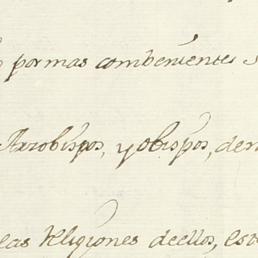 por mas combenientes
Arzobispos, y obispos, den
eas Religiones deellos, est